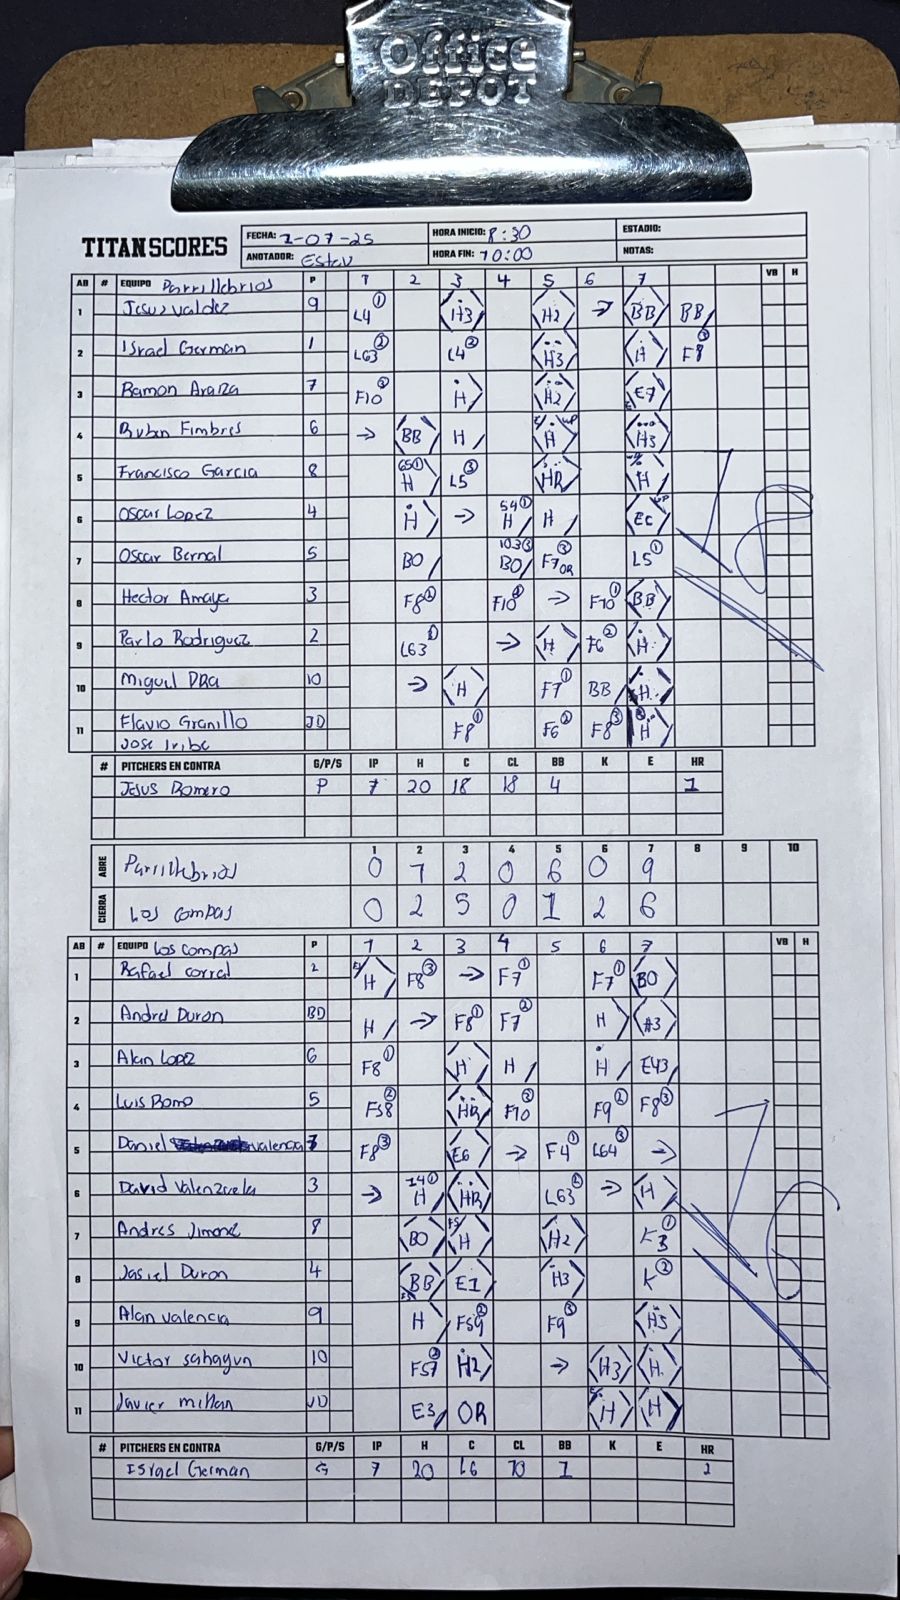 Office
DEPOT
TITAN SCORES
FECHA: 1-07-25 HORA INICIO: 8:30 ESTADIO:
ANOTADOR: Estav HORA FIN: 10:00 NOTAS:
AB # EQUIPO Parrillebrios P 1 2 3 4 5 6 7 VB H
1 Jesus valdez 9 L4 1 H3 H2 → BB BB
2 Israel German 1 L63 2 L4 2 H3 H F8 3
3 Ramon Araiza 7 F10 3 H H2 E7
4 Ruben Fimbres 6 → BB H H H3
5 Francisco Garcia 8 H L5 3 HR H
6 Oscar Lopez 4 H → 54 1 H H E6 WP
7 Oscar Bernal 5 BO BO F7 3 OR L5 1
8 Hector Amaya 3 F8 2 F10 2 → F10 1 BB
9 Parlo Rodriguez 2 L63 3 → H F6 2 H
10 Miguel DRA 10 → H F7 1 BB H
11 Flavio Granillo JD F8 1 F6 2 F8 3 H
Jose Iribe
# PITCHERS EN CONTRA G/P/S IP H C CL BB K E HR
Jesus Romero P 7 20 18 18 4 1
1 2 3 4 5 6 7 8 9 10
ABRE Parrillebrios 0 1 2 0 6 0 9
CIERRA Los compas 0 2 5 0 1 2 6
18
AB # EQUIPO Los compas P 1 2 3 4 5 6 7 VB H
1 Rafael corral 2 H F8 3 → F7 1 F7 1 BO
2 Andrel Duron BD H → F8 1 F7 2 H H3
3 Alan Lopez 6 F8 1 H H H E43
4 Luis Romo 5 F58 2 HR F10 3 F9 2 F8 3
5 Daniel valencia 7 F8 3 E6 → F4 1 L64 3 →
6 David Valenzuela 3 → 14 1 H HR L63 2 → H
7 Andres Jimenez 8 BO H H2 K3 1
8 Jasiel Duron 4 BB E1 H3 K 2
9 Alan valencia 9 H F59 2 F9 3 H5
10 Victor sahagun 10 F57 2 H2 → H3 H
11 Javier millan JD E3 OR H H
16
# PITCHERS EN CONTRA G/P/S IP H C CL BB K E HR
Israel German G 7 20 16 10 1 2